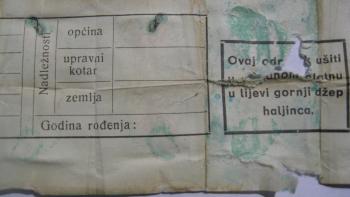 Nadležnosti
općina
upravni
kotar
zemlja
Godina rođenja:
Ovaj ušiti
u lijevi gornji džep
haljinca.